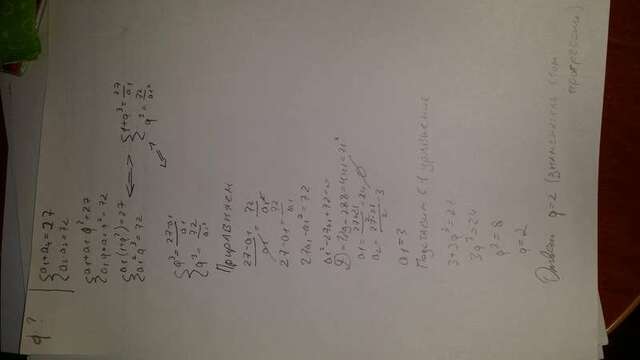 q ?
{ a1 + a4 = 27
{ a2 · a3 = 72
{ a1 + a1 q³ = 27
{ a1 q · a1 q² = 72
{ a1 (1 + q³) = 27 <=> { 1 + q³ = 27/a1
{ a1² q³ = 72 { q³ = 72/a1²
{ q³ = 27-a1/a1
{ q³ = 72/a1²
Приравняем
27-a1/a1 = 72/a1²
27 - a1 = 72/a1
27a1 - a1² = 72
a1² - 27a1 + 72 = 0
D = 729 - 288 = 441 = 21²
a1 = 27+21/2 = 24
a2 = 27-21/2 = 3
a1 = 3
Подставим в 1 уравнение
3 + 3q³ = 27
3q³ = 24
q³ = 8
q = 2
Ответ q = 2 (знаменатель
прогрессии)